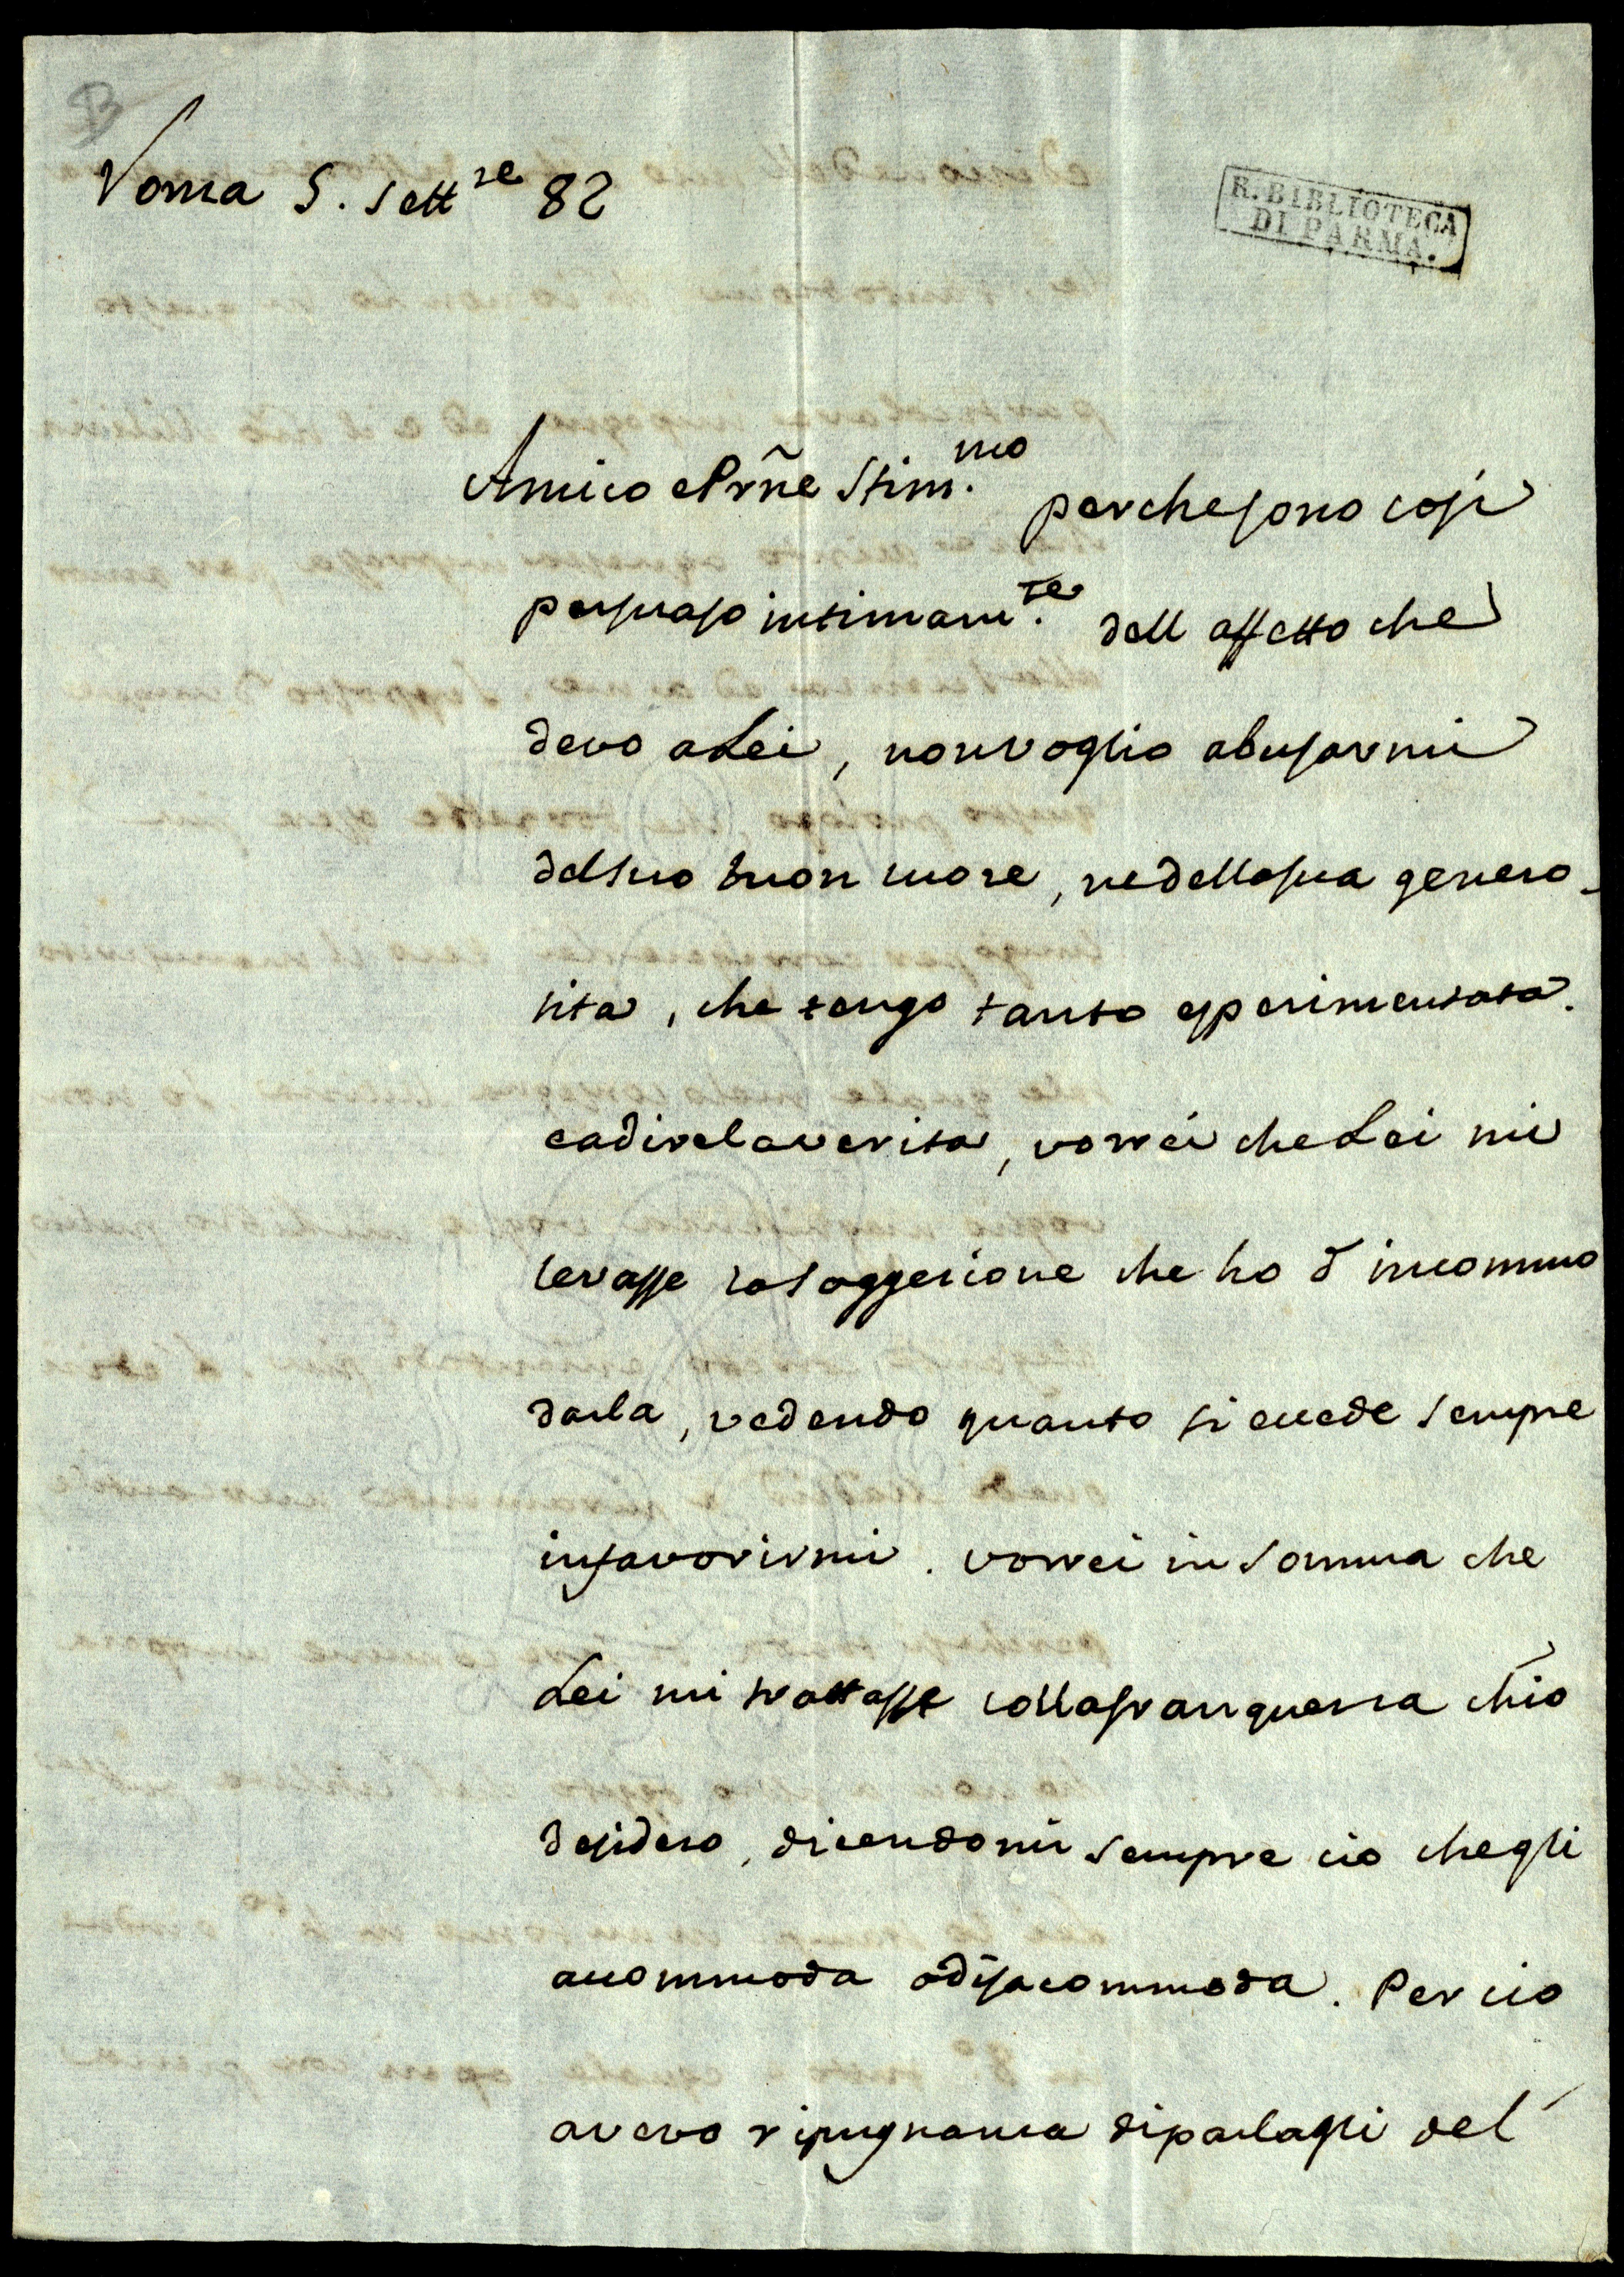 B
Roma 5. Sett.re 82
R. BIBLIOTECA
DI PARMA.
Amico e Prñe Stim.mo perche sono cosi
persuaso intimam.te dell affetto che
devo a Lei, non voglio abusarmi
del suo buon cuore, ne della sua genero-
sita, che tengo tanto esperimentata.
e a dire la verita, vorrei che Lei mi
levasse la soggezione che ho d'incommo
darla, vedendo quanto si eccede sempre
in favorirmi. vorrei in somma che
Lei mi trattasse colla franquezza ch'io
desidero, dicendomi sempre cio che gli
accommoda o disaccommoda. Per cio
avevo ripugnanza di parlagli del